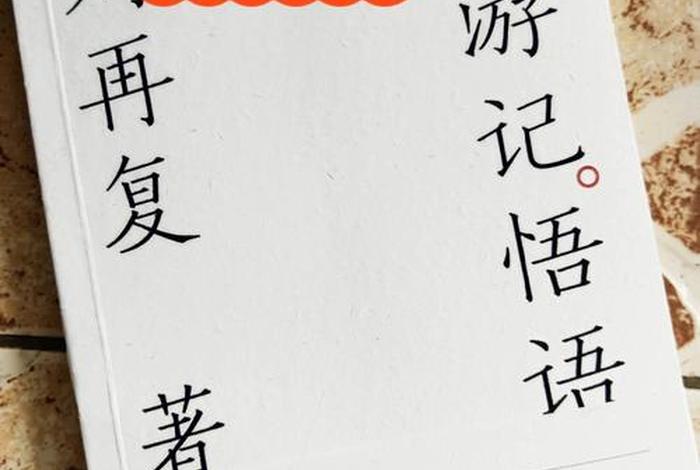 游记。悟语
再复 著